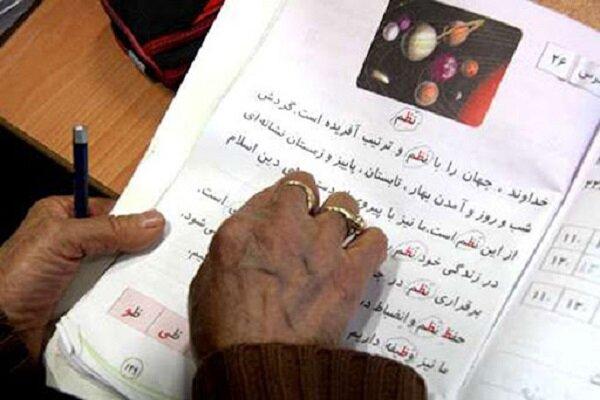 درس ۲۶
نظم
خداوند، جهان را با نظم و ترتیب آفریده است. گردش
شب و روز و آمدن بهار، تابستان، پاییز و زمستان نشانه‌ای
از این نظم است. ما نیز با پیروی دین اسلام
در زندگی خود نظم است.
برقراری نظم در می‌شود.
حفظ نظم و انضباط
ما نیز وظیفه داریم
ظی ظو
۱۲۹
۱۱۰
۱۲۰
۱۱۰ ۱۲۰